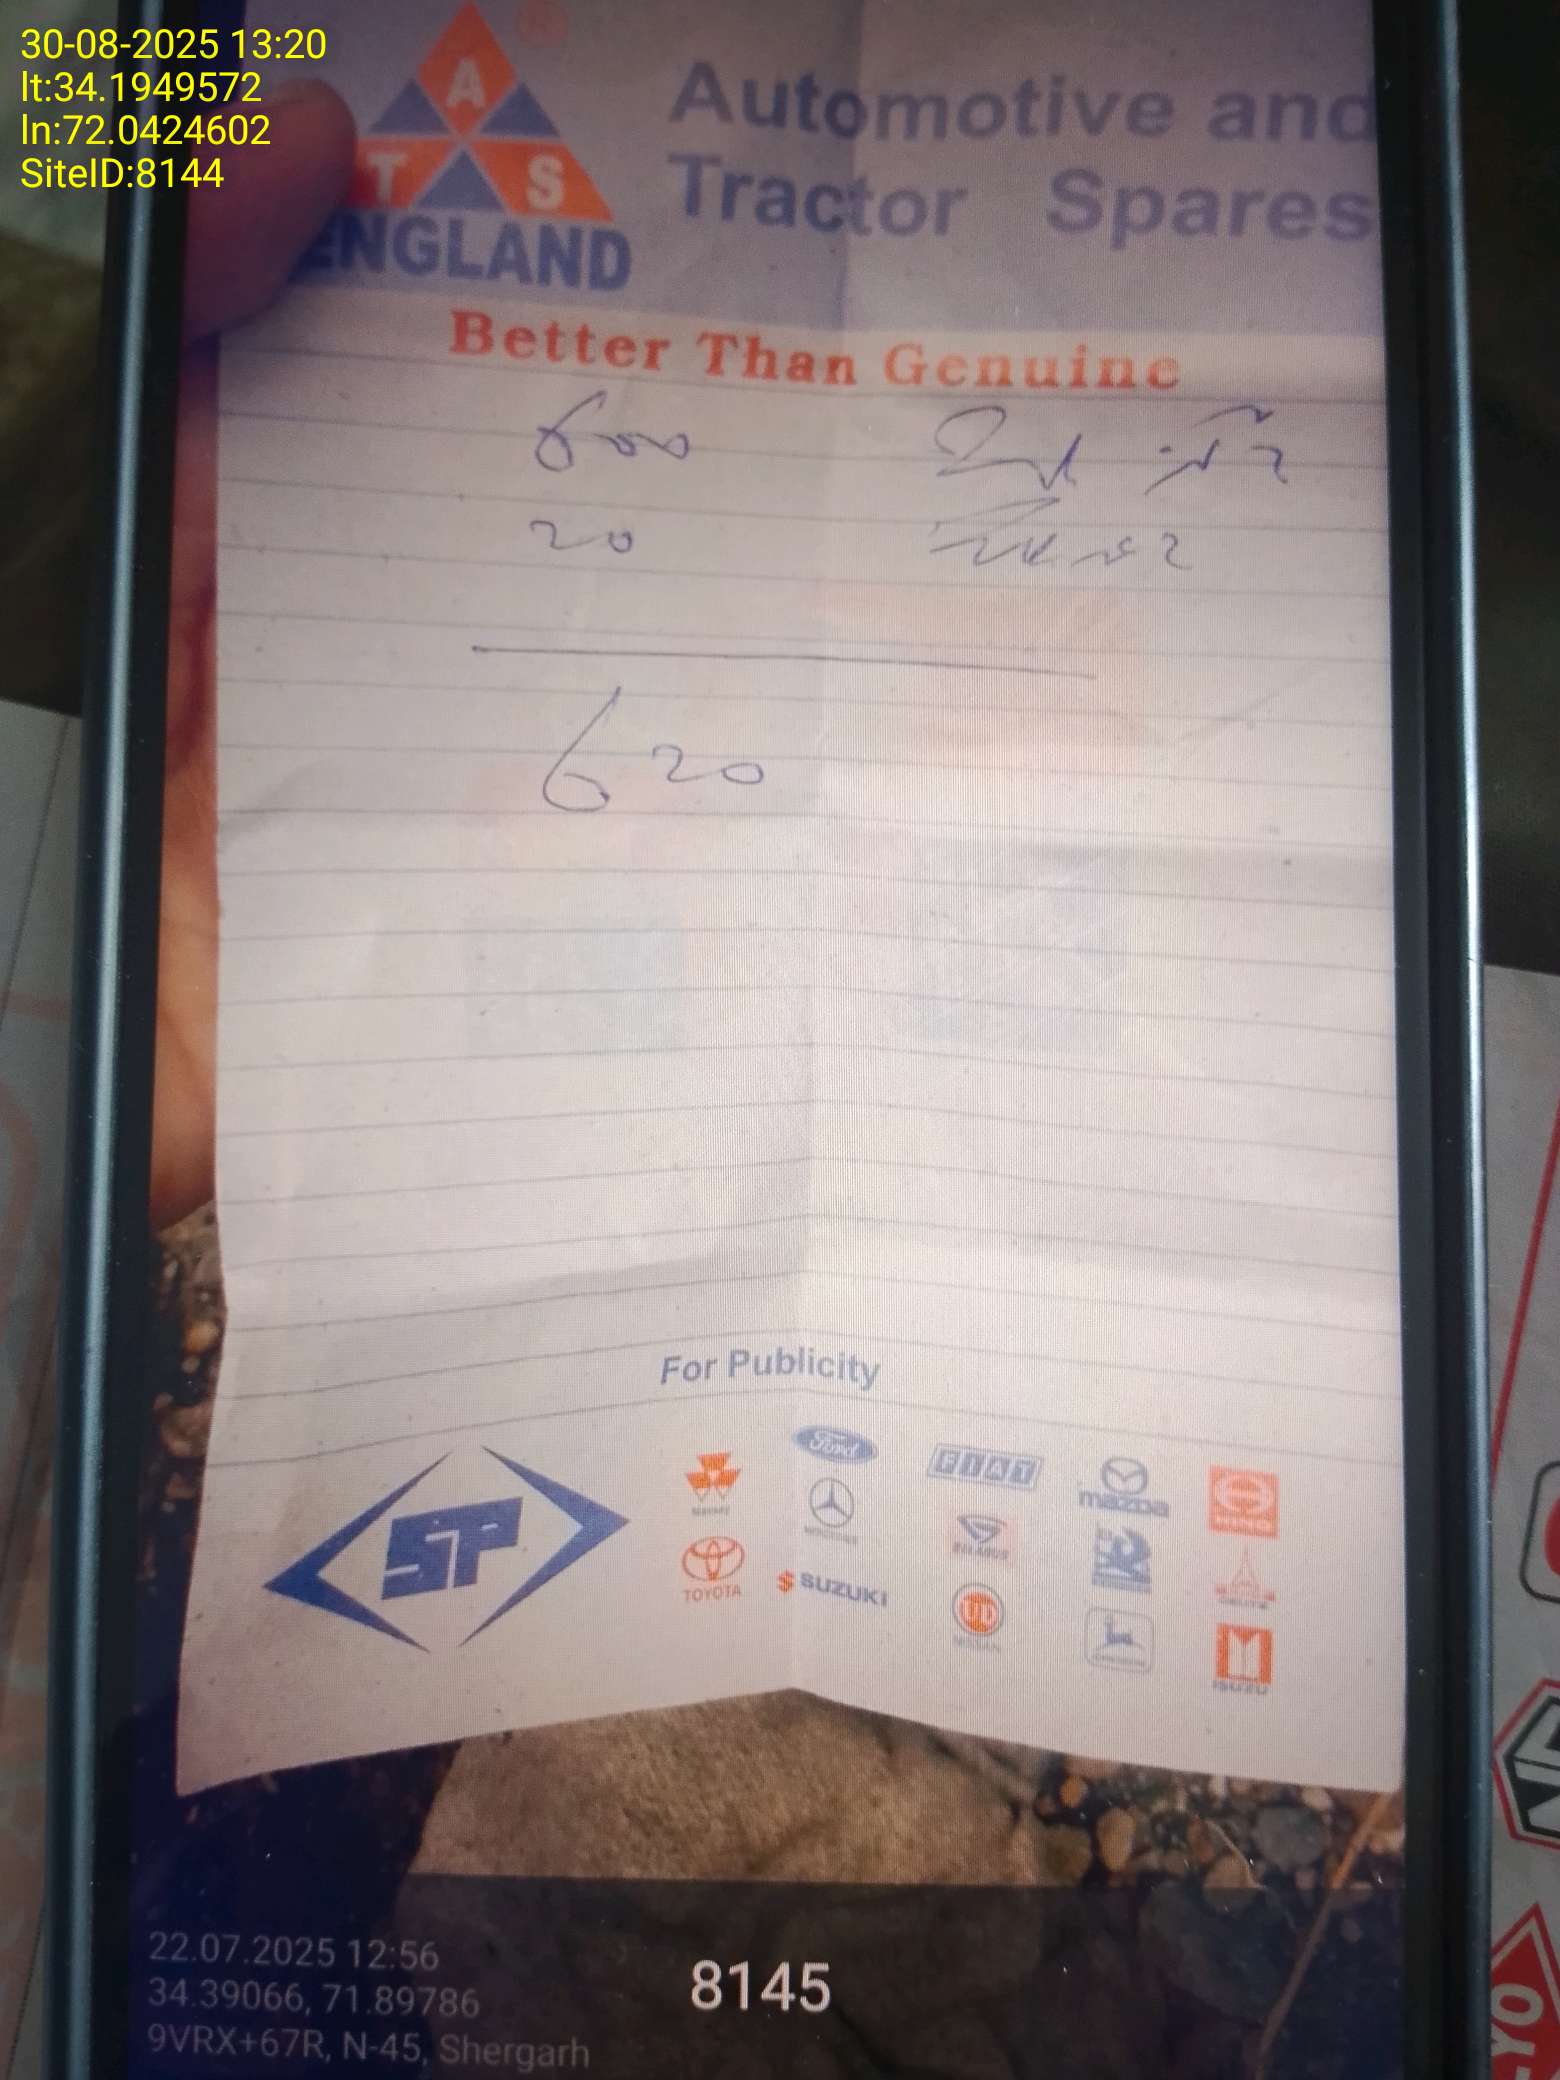 30-08-2025 13:20
lt:34.1949572
ln:72.0424602
SiteID:8144
A
T S
ENGLAND
®
Automotive and
Tractor Spares
Better Than Genuine
600
20
620
For Publicity
SP
Ford
FIAT
mazda
HINO
TOYOTA
$ SUZUKI
UD
ISUZU
22.07.2025 12:56
34.39066, 71.89786
9VRX+67R, N-45, Shergarh
8145